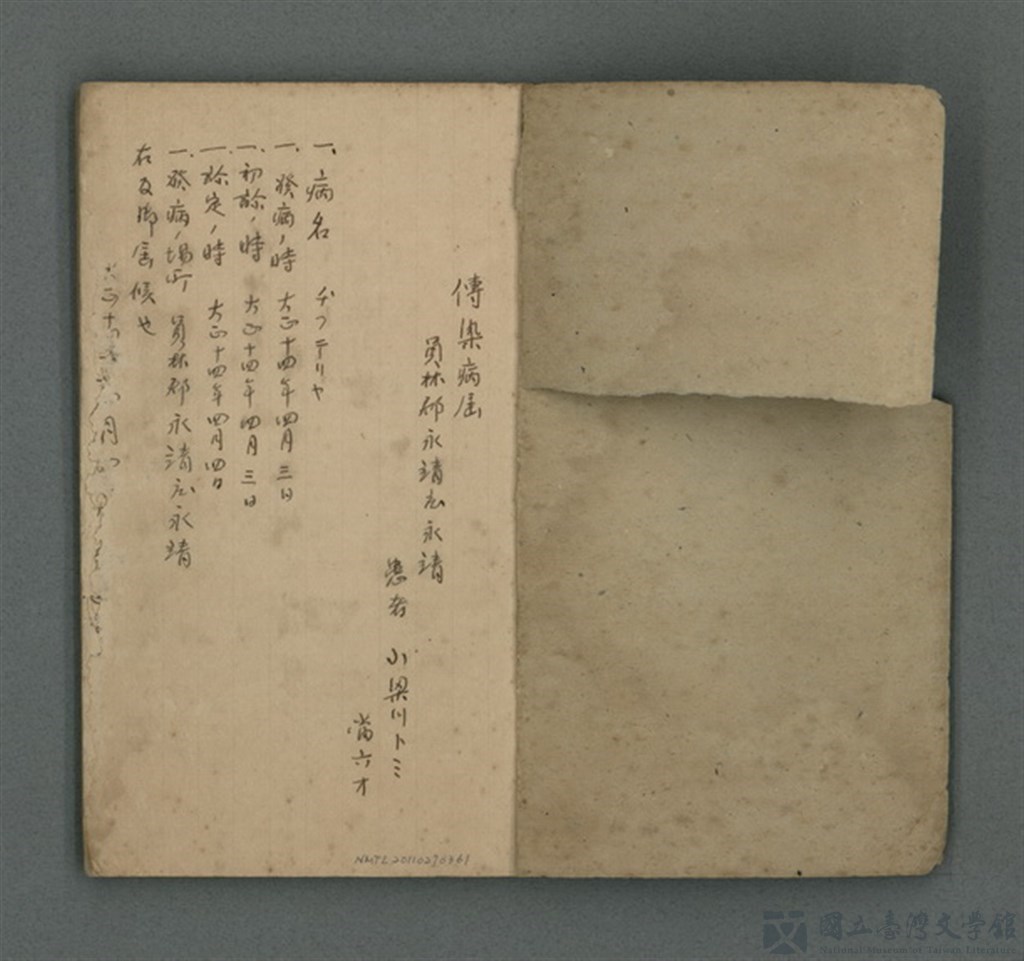 傳染病届
員林郡永靖庄永靖
患者 小梁川トミ
當六才
一、病名 ヂフテリヤ
一、発病ノ時 大正十四年四月三日
一、初診ノ時 大正十四年四月三日
一、診定ノ時 大正十四年四月四日
一、発病ノ場所 員林郡永靖庄永靖
右及御届候也
大正十四年四月
NMTL20110270361
國立臺灣文学館
National Museum of Taiwan Literature